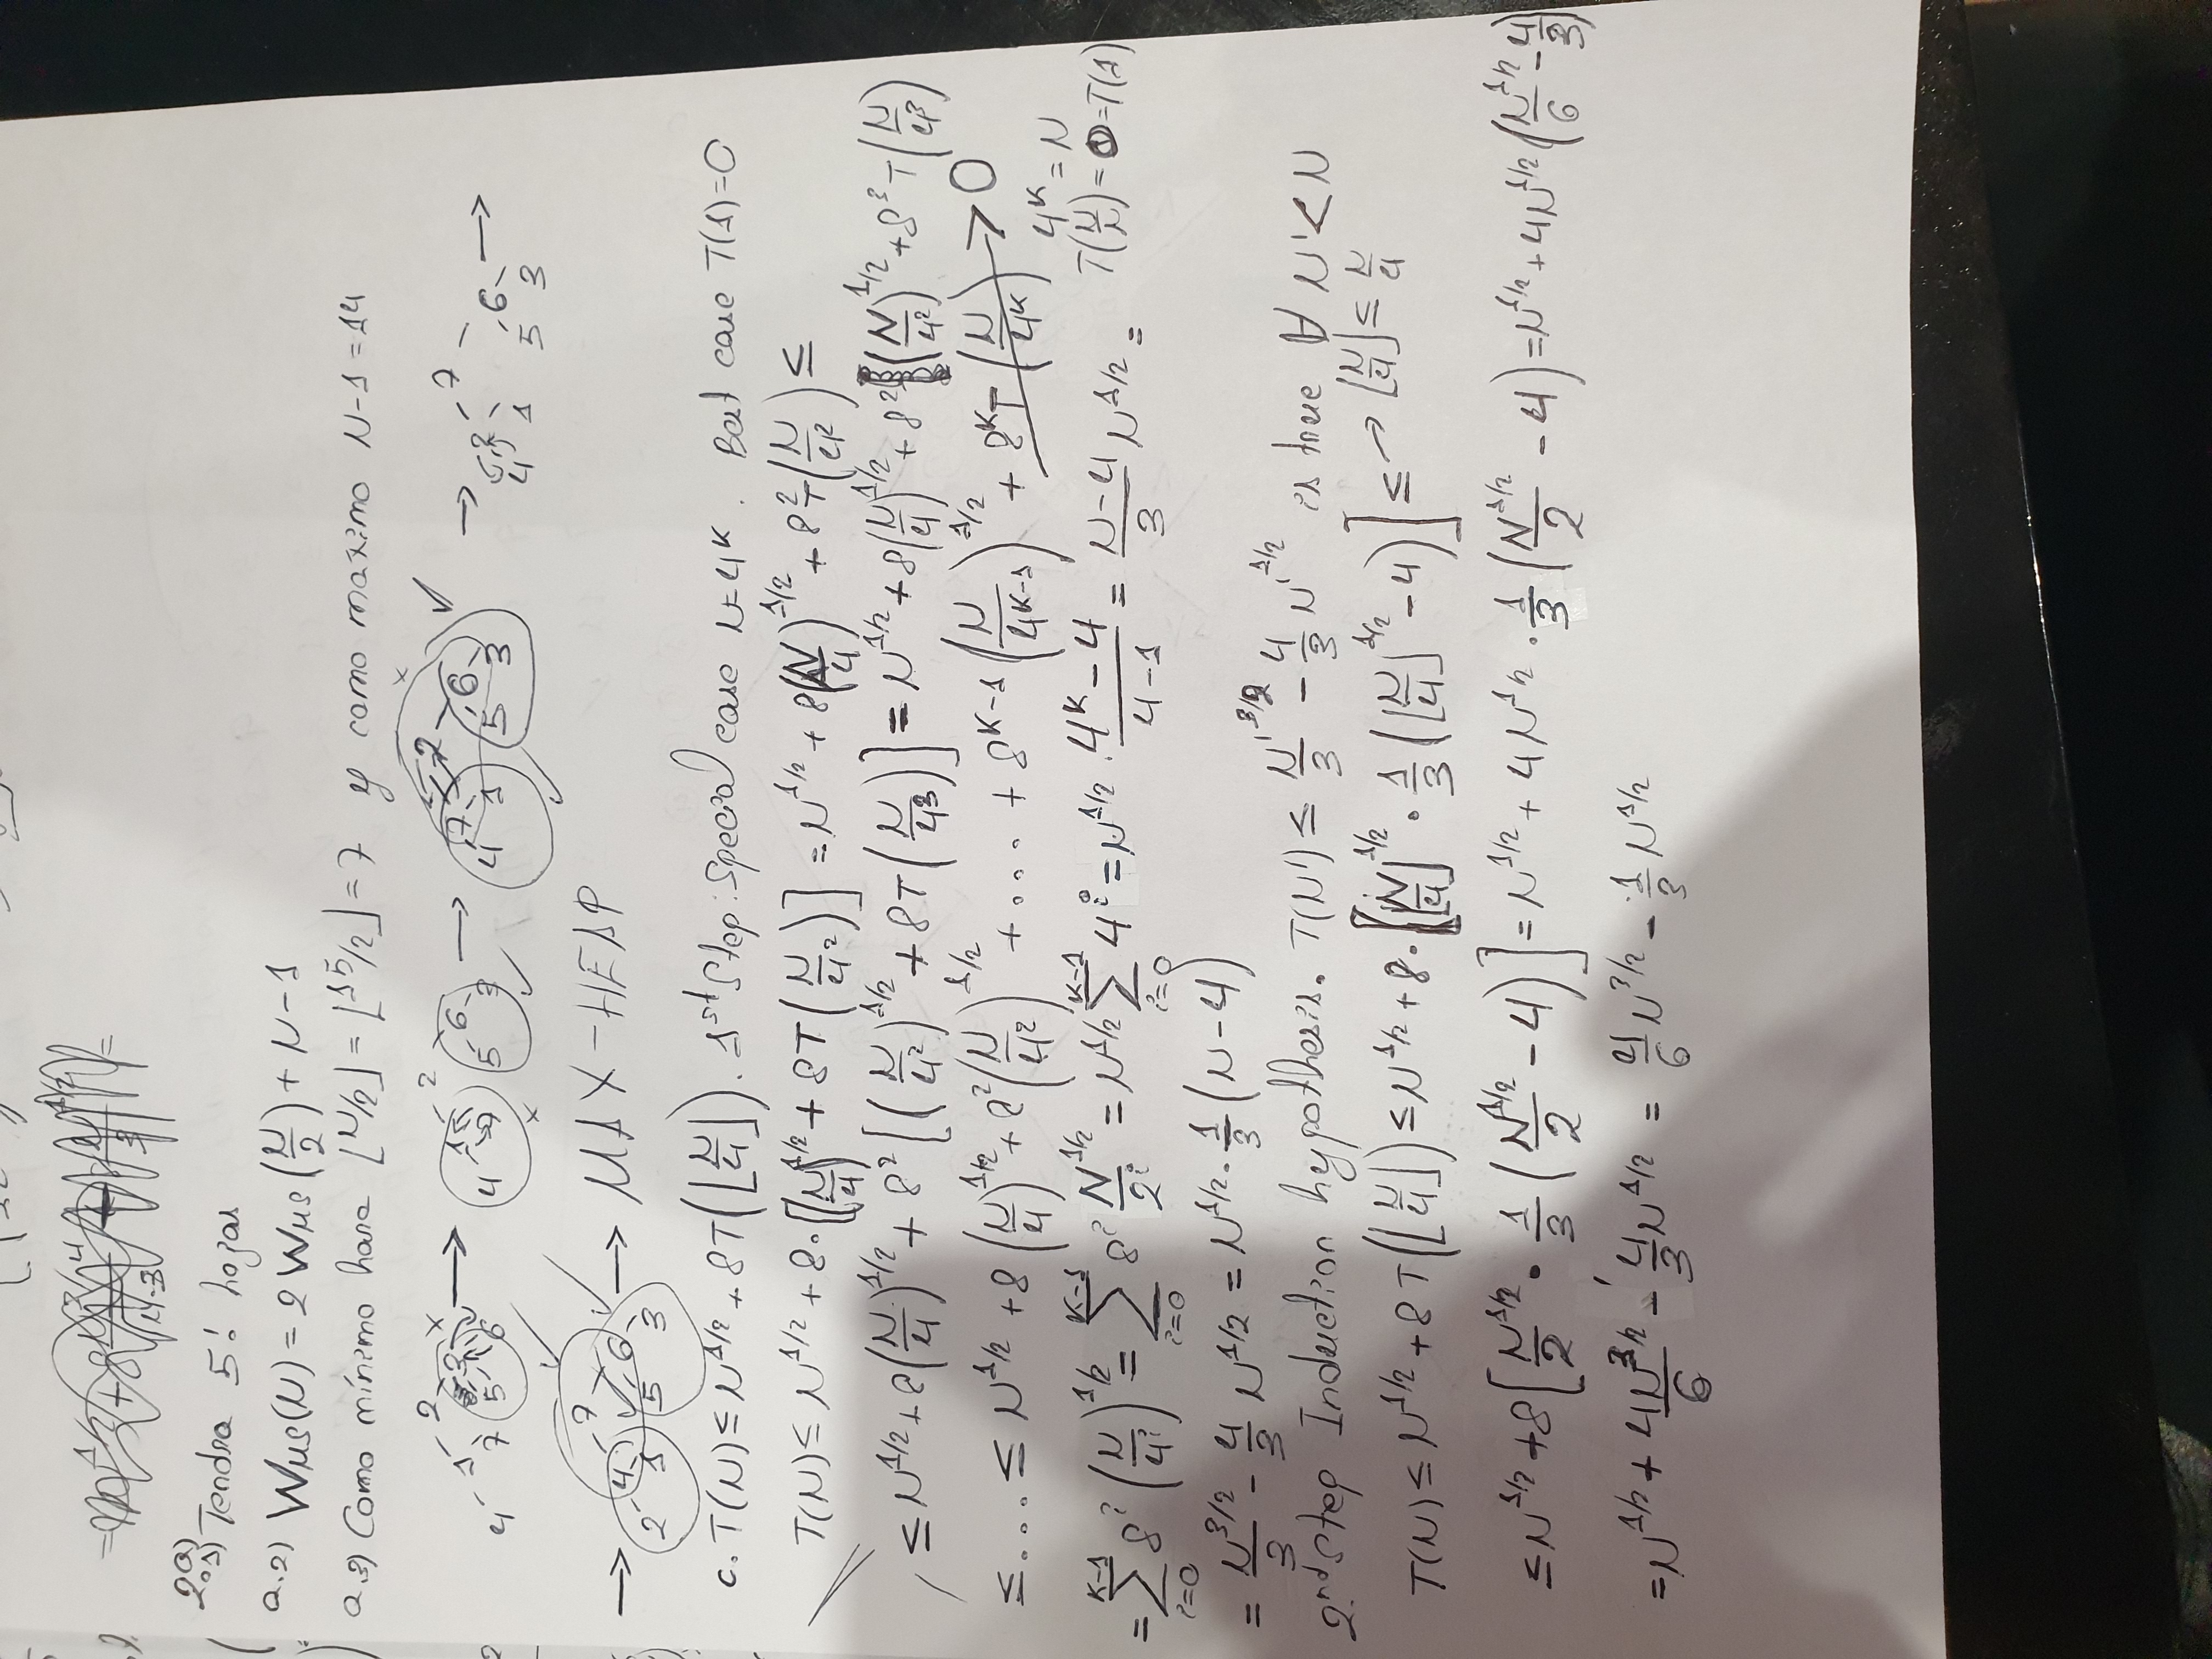 2a)
.1) Tendra 5! hojas
a.2) WMS(N) = 2 WMS(N/2) + N - 1
a.3) Como mínimo hara ⌊N/2⌋ = ⌊15/2⌋ = 7 y como maximo N-1 = 14
2 x → 2 → 2 x ✓ → 7 →
1 3 1 6 7 6 2 6
4 7 5 6 4 7 5 3 4 1 5 3 4 1 5 3
x ✓ ✓
→ 7 ✓ ✓ → MAX-HEAP
4 ✓ 6
2 1 5 3
c. T(N) ≤ N^1/2 + 8T(⌊N/4⌋). 1st Step: Special case N=4^K. Bat case T(1)=0
T(N) ≤ N^1/2 + 8·[(N/4)^1/2 + 8T(N/4^2)] = N^1/2 + 8(N/4)^1/2 + 8^2 T(N/4^2) ≤
≤ N^1/2 + 8(N/4)^1/2 + 8^2[(N/4^2)^1/2 + 8T(N/4^3)] = N^1/2 + 8(N/4)^1/2 + 8^2(N/4^2)^1/2 + 8^3 T(N/4^3)
≤ ... ≤ N^1/2 + 8(N/4)^1/2 + 8^2(N/4^2)^1/2 + ... + 8^K-1(N/4^K-1)^1/2 + 8^K T(N/4^K) → 0
4^K = N
T(N/N) = 0 = T(1)
= ∑_{i=0}^{K-1} 8^i (N/4^i)^1/2 = ∑_{i=0}^{K-1} 8^i N^1/2/2^i = N^1/2 ∑_{i=0}^{K-1} 4^i = N^1/2 · (4^K - 4)/(4-1) = (N-4)/3 N^1/2 =
= N^3/2/3 - 4/3 N^1/2 = N^1/2 · 1/3 (N-4)
2.nd Step Induction hypothesis. T(N') ≤ N'^3/2/3 - 4/3 N'^1/2 is true ∀ N' < N
T(N) ≤ N^1/2 + 8T(⌊N/4⌋) ≤ N^1/2 + 8·[⌊N/4⌋^1/2 · 1/3 (⌊N/4⌋^1/2 - 4)] ≤ → ⌊N/4⌋ ≤ N/4
≤ N^1/2 + 8[N^1/2/2 · 1/3 (N^1/2/2 - 4)] = N^1/2 + 4N^1/2 · 1/3 (N^1/2/2 - 4) = N^1/2 + 4N^1/2 (N^1/2/6 - 4/3)
= N^1/2 + 4N^3/2/6 - 4/3 N^1/2 = 4/6 N^3/2 - 1/3 N^1/2